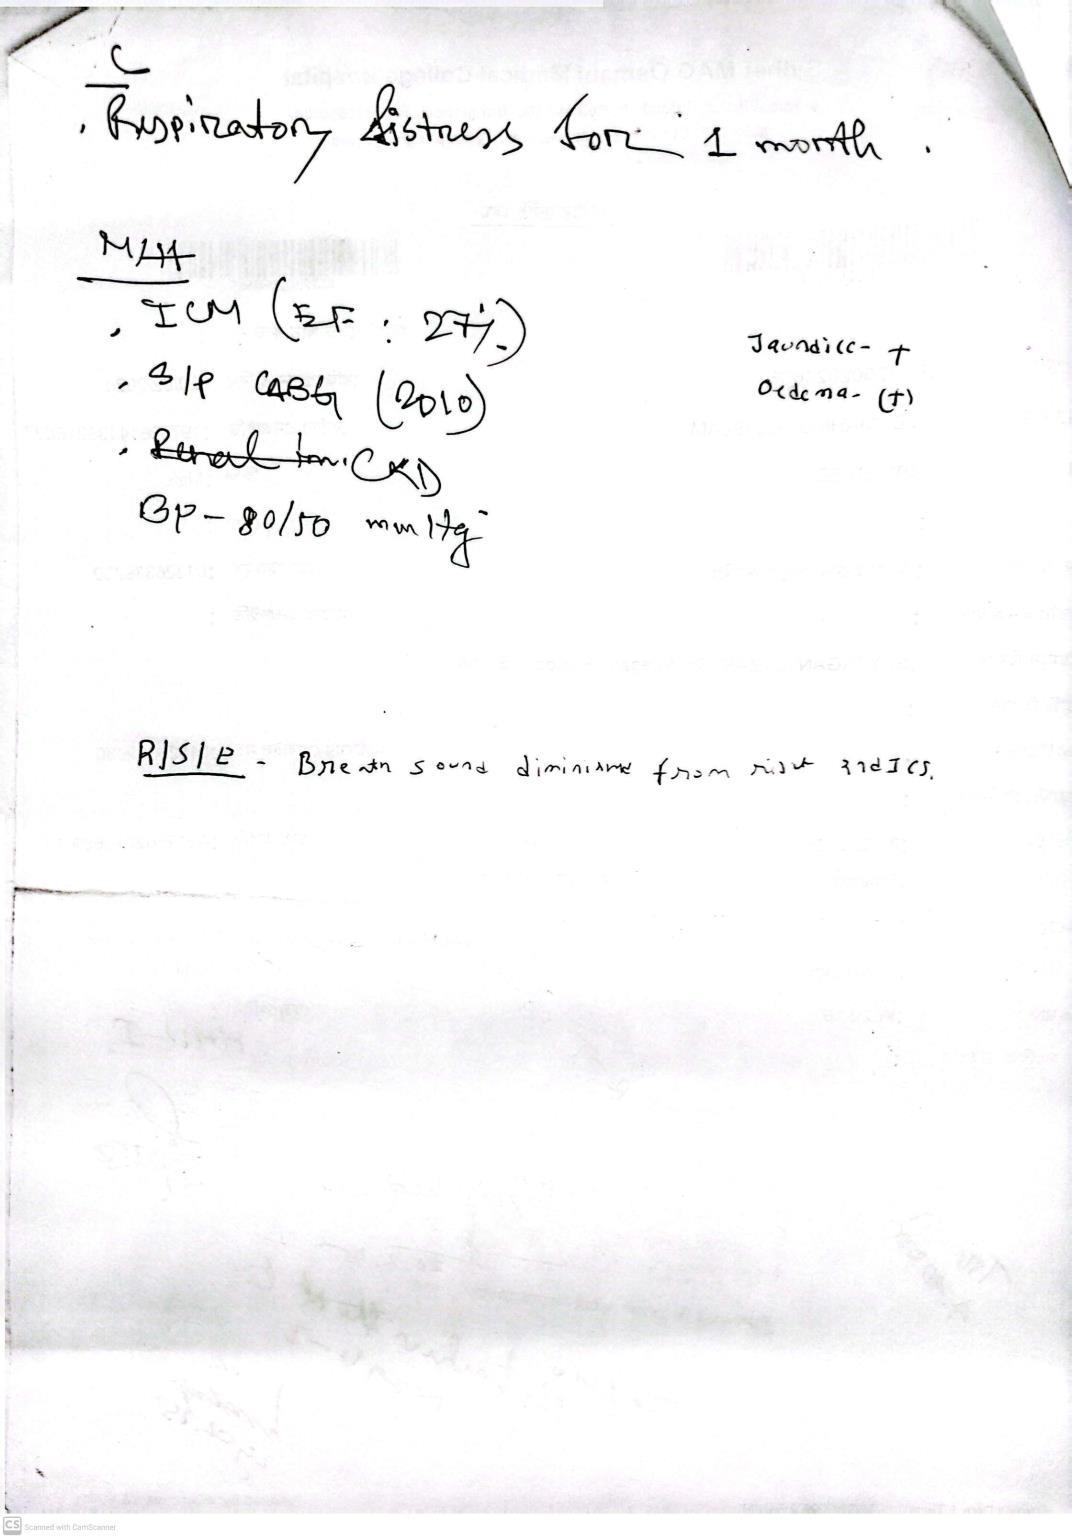 C
. Respiratory distress for 1 month .
M/H
. ICM (EF : 27%)
. S/P CABG (2010)
. Renal CKD
BP - 80/50 mmHg
Jaundice - +
Oedema - (+)
R/S/E - Breath sound diminished from right 3rd ICS.
CS Scanned with CamScanner